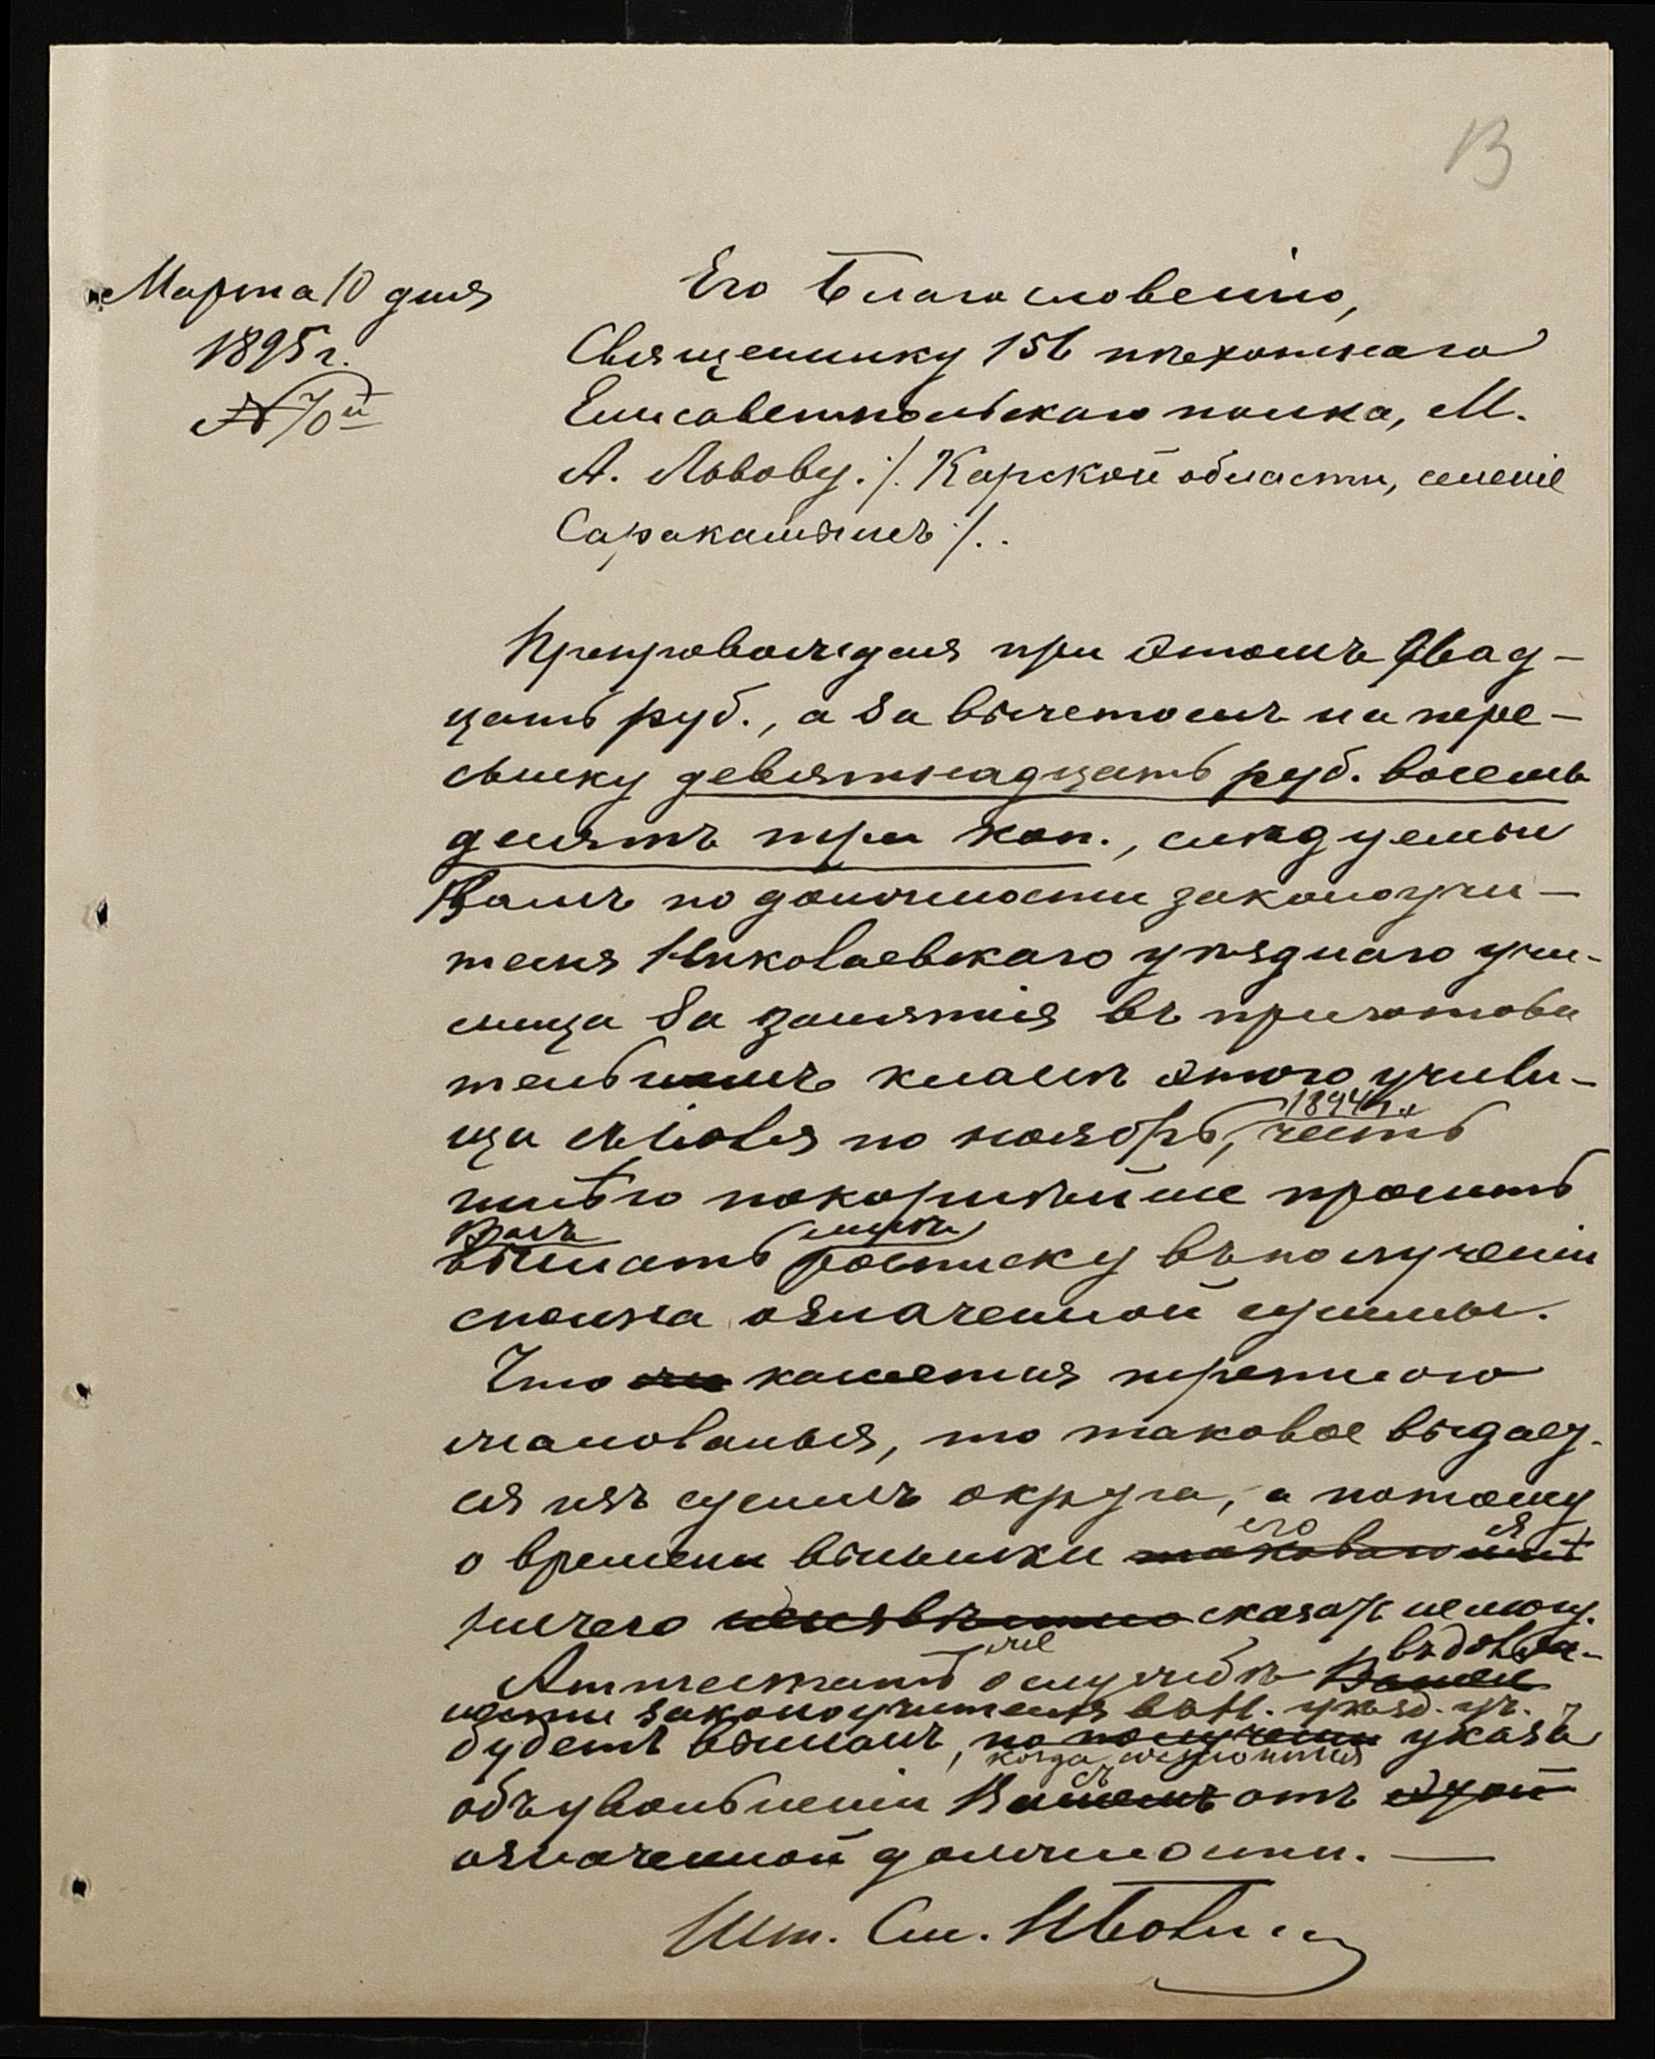 13
Марта 10 дня
1895 г.
№ 70й
Его Благословенію,
Священнику 156 пѣхотнаго
Елисаветпольскаго полка, М.
А. Львову. /. Карской области, селеніе
Саракамышъ /. .
Препровождая при этомъ двад-
цать руб., а за вычетомъ на пере-
сылку девятнадцать руб. восемь
десятъ три коп., слѣдуемыи
Вамъ по должности законоучи-
теля Николаевскаго уѣзднаго учи-
лища за занятія въ приготови
тельномъ класѣ этого учили-
1894 г.
ща съ іюля по ноябрь, честь
имѣю покорнѣйше просить
Васъ мнѣ
выслать росписку въ полученіи
сполна означенной суммы.
Что же касается прогоннаго
жалованья, то таковое выдает-
ся изъ суммъ округа, а потому
его я
о времени высылки таковаго
ничего неизвѣстно сказать не могу.
же въ должно-
Аттестатъ о службѣ Вашей
сти законоучителя въ Н. уѣзд. уч.
будетъ высланъ, по полученіи указа
когда состоится
съ
объ увольненіи Вашемъ отъ этой
означенной должности. —
Шт. См.